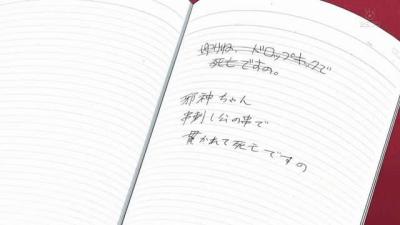 ゆりね、ドロップキックで
死亡ですの。
邪神ちゃん
串刺し公の串で
貫かれて死亡ですの